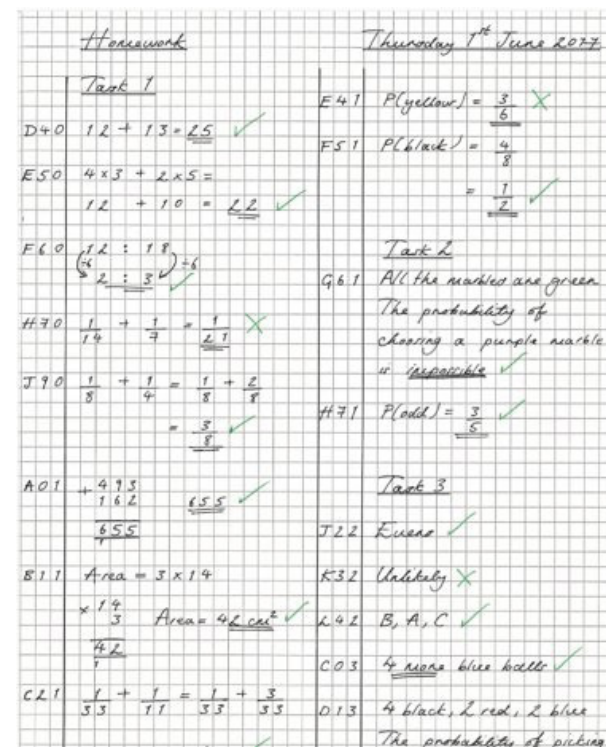 Homework
Thursday 1st June 2077
Task 1
D40 12 + 13 = 25
E50 4 × 3 + 2 × 5 =
12 + 10 = 22
F60 12 : 18
÷6 ÷6
2 : 3
H70 1/14 + 1/7 = 1/21
J90 1/8 + 1/4 = 1/8 + 2/8
= 3/8
A01 + 493
162
655
655
1
B11 Area = 3 × 14
× 14
3 Area = 42 cm²
42
1
C21 1/33 + 1/11 = 1/33 + 3/33
E41 P(yellow) = 3/6
F51 P(black) = 4/8
= 1/2
Task 2
G61 All the marbled are green
The probability of
choosing a purple marble
is impossible
H71 P(odd) = 3/5
Task 3
J22 Evens
K32 Unlikely
L42 B, A, C
C03 4 more blue balls
D13 4 black, 2 red, 2 blue
The probability of picking